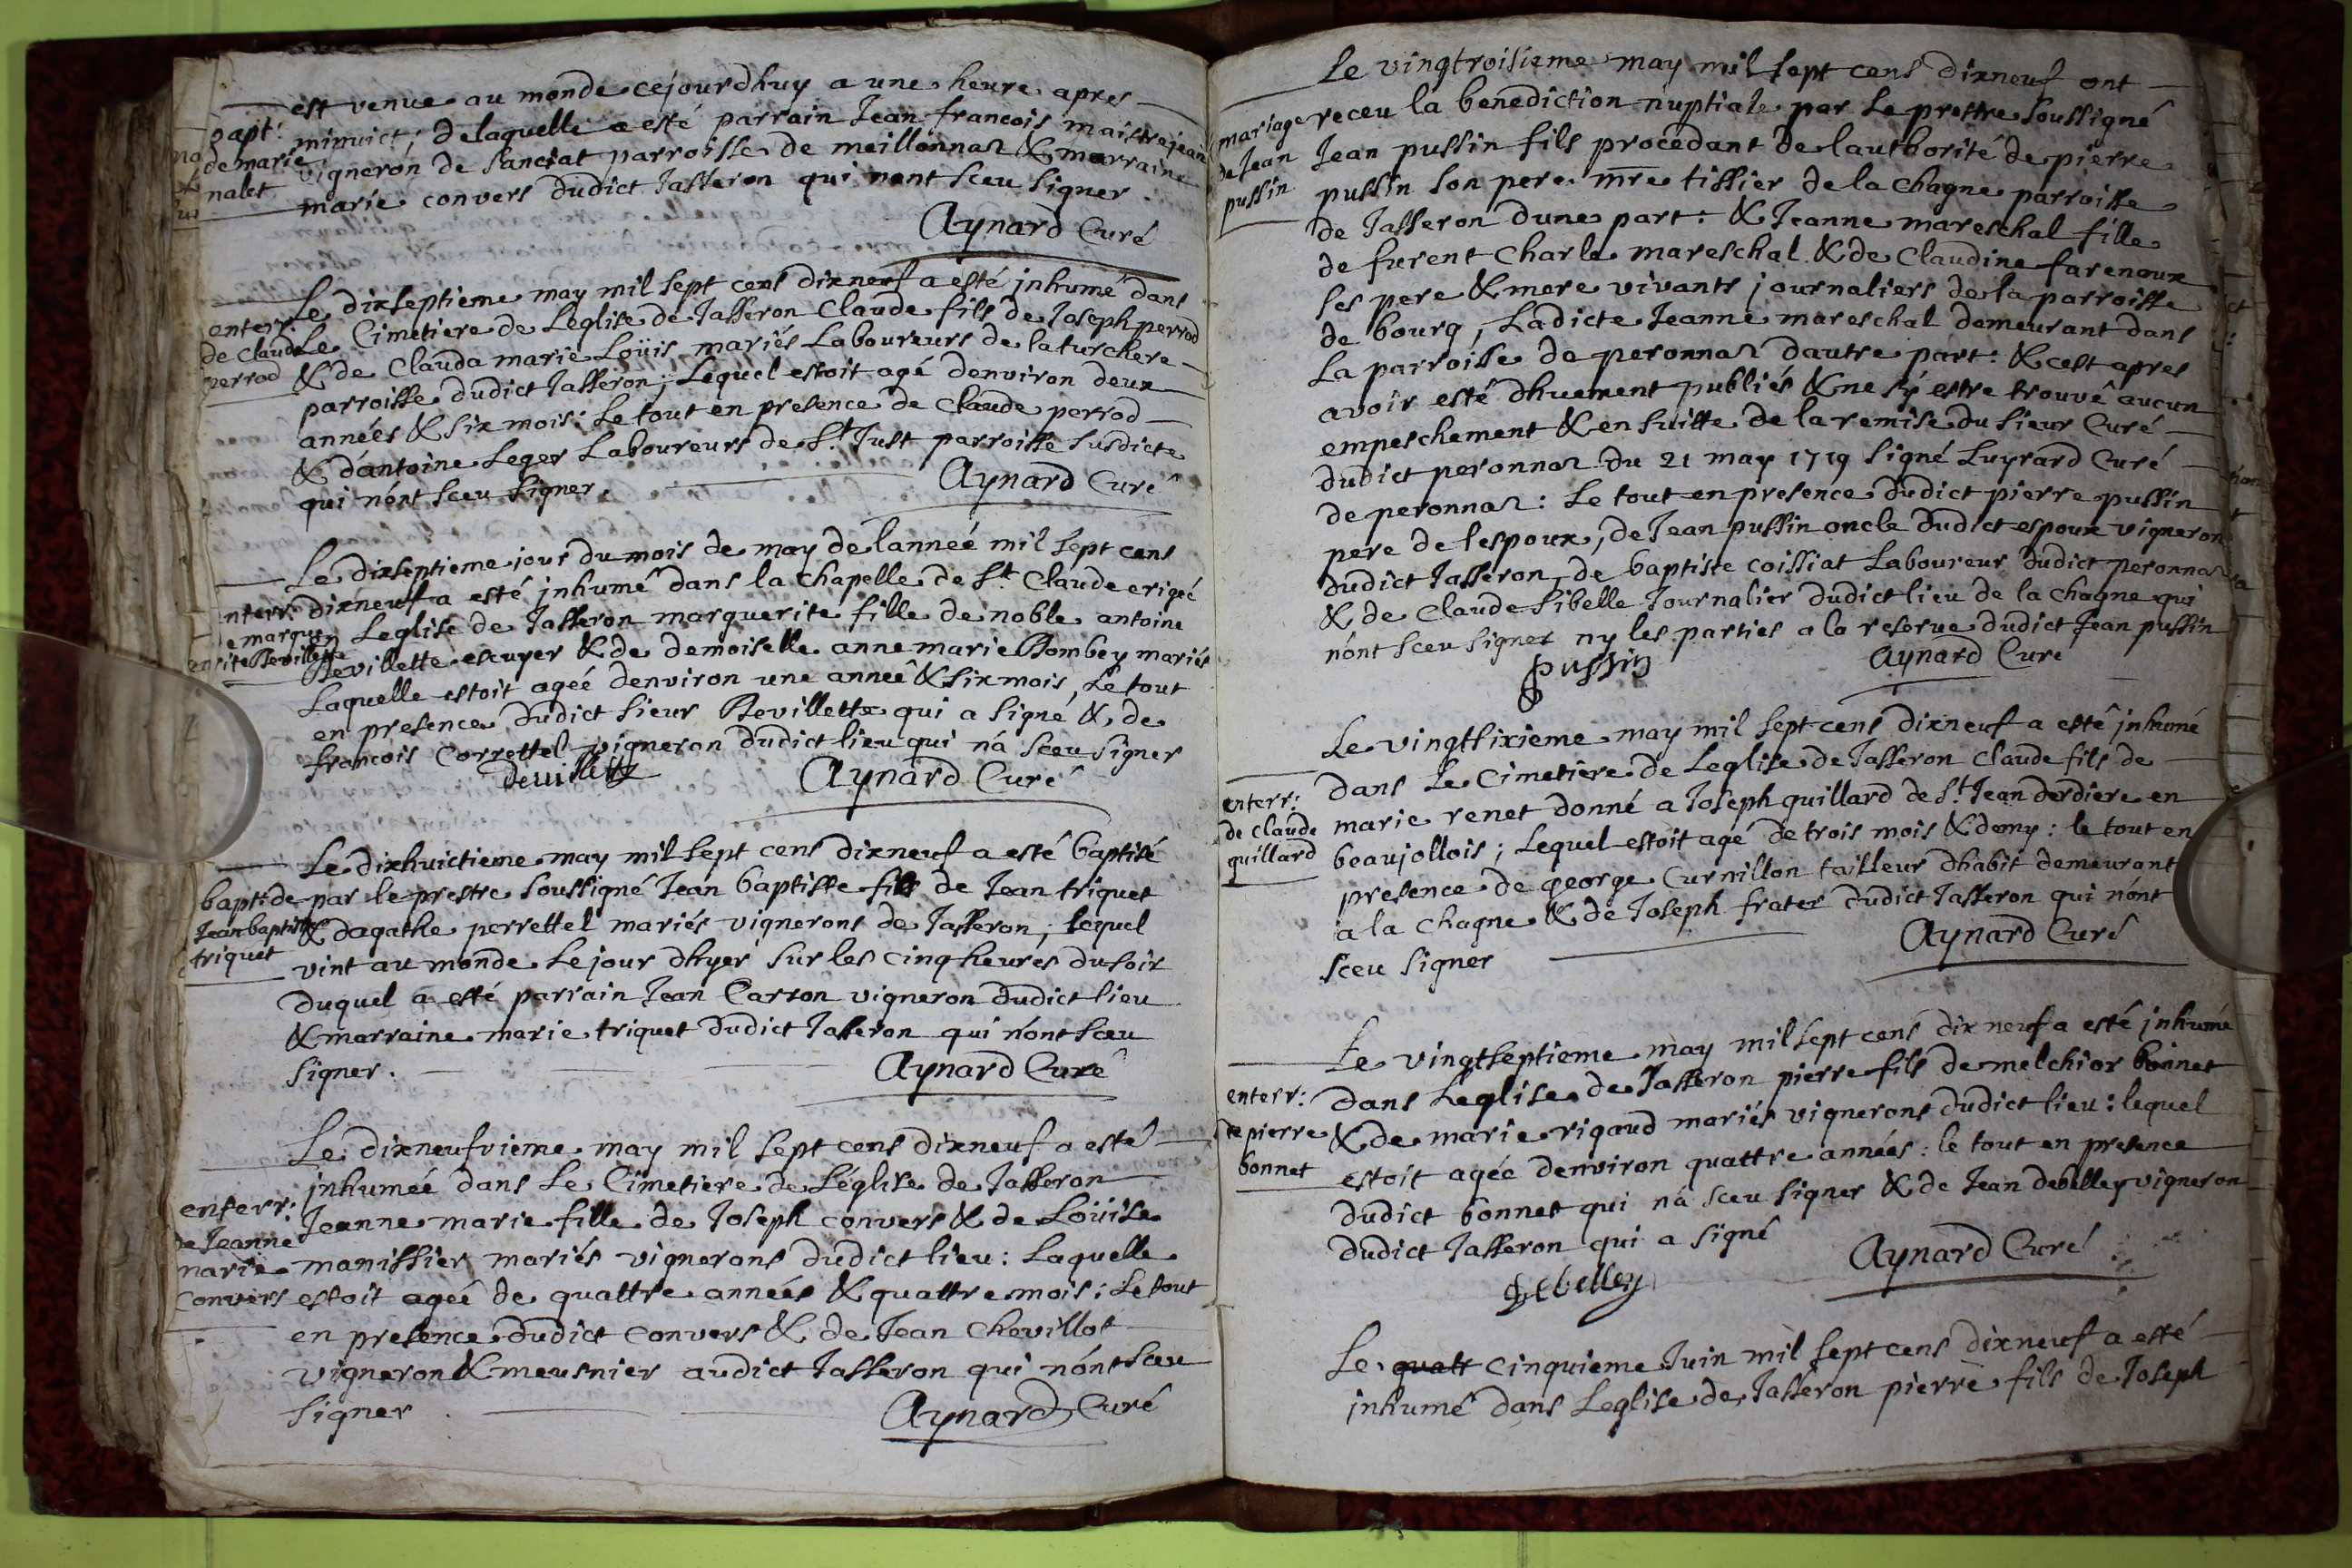 est venue au monde cejourdhuy a une heure apres
bapt:
minuict; delaquelle a esté parrain Jean francois maistrejean
de marie
vigneron de sanciat parroisse de meillonnas & marraine
nalet
marie convers dudict Jasseron qui nont sceu signer.
Aynard Curé
Le dixseptieme may mil sept cens dixneuf a esté inhumé dans
enterr:
Le Cimetiere de Leglise de Jasseron Claude fils de Joseph perrod
de Claude
& de Clauda marie Loüis mariés Laboureurs de la turchere
perrod
parroisse dudict Jasseron; Lequel estoit agé denviron deux
années & six mois: Le tout en presence de Claude perrod
& d'antoine Leger Laboureurs de St Just parroisse susdicte
qui n'ont sceu signer.
Aynard Curé
Le dixseptieme jour du mois de may de lanneé mil sept cens
enterr:
dixneuf a esté inhumé dans la chapelle de St Claude erigeé
de margue
en Leglise de Jasseron marguerite fille de noble antoine
rite Revillette
Revillette escuyer & de demoiselle anne marie Bombey mariés
Laquelle estoit ageé denviron une anneé & six mois, Le tout
en presence dudict sieur Revillette qui a signé & de
francois Correttel vigneron dudict lieu qui n'a sceu signer
Aynard Curé
Le dixhuictieme may mil sept cens dixneuf a esté baptisé
bapt: de
par le prestre soussigné Jean baptiste fils de Jean triquet
Jean baptiste
& dagathe perrettel mariés vignerons de Jasseron; lequel
triquet
vint au monde Le jour dhyer sur les cinq heures du soir
duquel a esté parrain Jean Carron vigneron dudict lieu
& marraine marie triquet dudict Jasseron qui n'ont sceu
signer.
Aynard Curé
Le dixneufvieme may mil sept cens dixneuf a esté
inhumeé dans Le Cimetiere de L'église de Jasseron
enterr:
Jeanne marie fille de Joseph convers & de Loüise
de Jeanne
marie
manissier mariés vignerons dudict lieu: Laquelle
convers
estoit ageé de quattre années & quattre mois; Le tout
en presence dudict convers & de Jean Chevillot
vigneron & meusnier audict Jasseron qui n'ont sceu
signer.
Aynard Curé
Le vingtroisieme may mil sept cens dixneuf ont
mariage
receu la benediction nuptiale par Le prettre soussigné
de Jean
Jean pussin fils procedant de lauthorité de pierre
pussin
pussin son pere mre tissier de la Chagne parroisse
de Jasseron dune part: & Jeanne mareschal fille
de furent Charle mareschal & de Claudine farenoux
ses pere & mere vivants journaliers de la parroisse
de bourg, Ladicte Jeanne mareschal demeurant dans
La parroisse de peronnas dautre part: & cest apres
avoir esté dhuement publiés & ne s'y estre trouvé aucun
empeschement & en suitte de la remise du sieur Curé
dudict peronnas du 21 may 1719 signé Luyrard Curé
de peronnas: Le tout en presence dudict pierre pussin
pere de lespoux, de Jean pussin oncle dudict espoux vigneron
dudict Jasseron, de baptiste coissiat Laboureur dudict peronnas
& de Claude sibelle Journalier dudict lieu de la Chagne qui
n'ont sceu signer ny les parties a la reserve dudict Jean pussin
Pussin
Aynard Curé
Le vingtsixieme may mil sept cens dixneuf a esté inhumé
dans Le Cimetiere de Leglise de Jasseron Claude fils de
enterr:
marie renet donné a Joseph quillard de St Jean derdiere en
de Claude
beaujollois; Lequel estoit agé de trois mois & demy: le tout en
quillard
presence de george Curnillon tailleur dhabit demeurant
a la Chagne & de Joseph frater dudict Jasseron qui n'ont
sceu signer
Aynard Curé
Le vingtseptieme may mil sept cens dixneuf a esté inhumé
enterr:
dans Leglise de Jasseron pierre fils de melchior bonnet
de pierre
& de marie rigaud mariés vignerons dudict lieu: lequel
bonnet
estoit agée denviron quattre années: le tout en presence
dudict bonnet qui n'a sceu signer & de Jean debelley vigneron
dudict Jasseron qui a signé
Debelley
Aynard Curé
Le quatt cinquieme Juin mil sept cens dixneuf a esté
inhumé dans Leglise de Jasseron pierre fils de Joseph